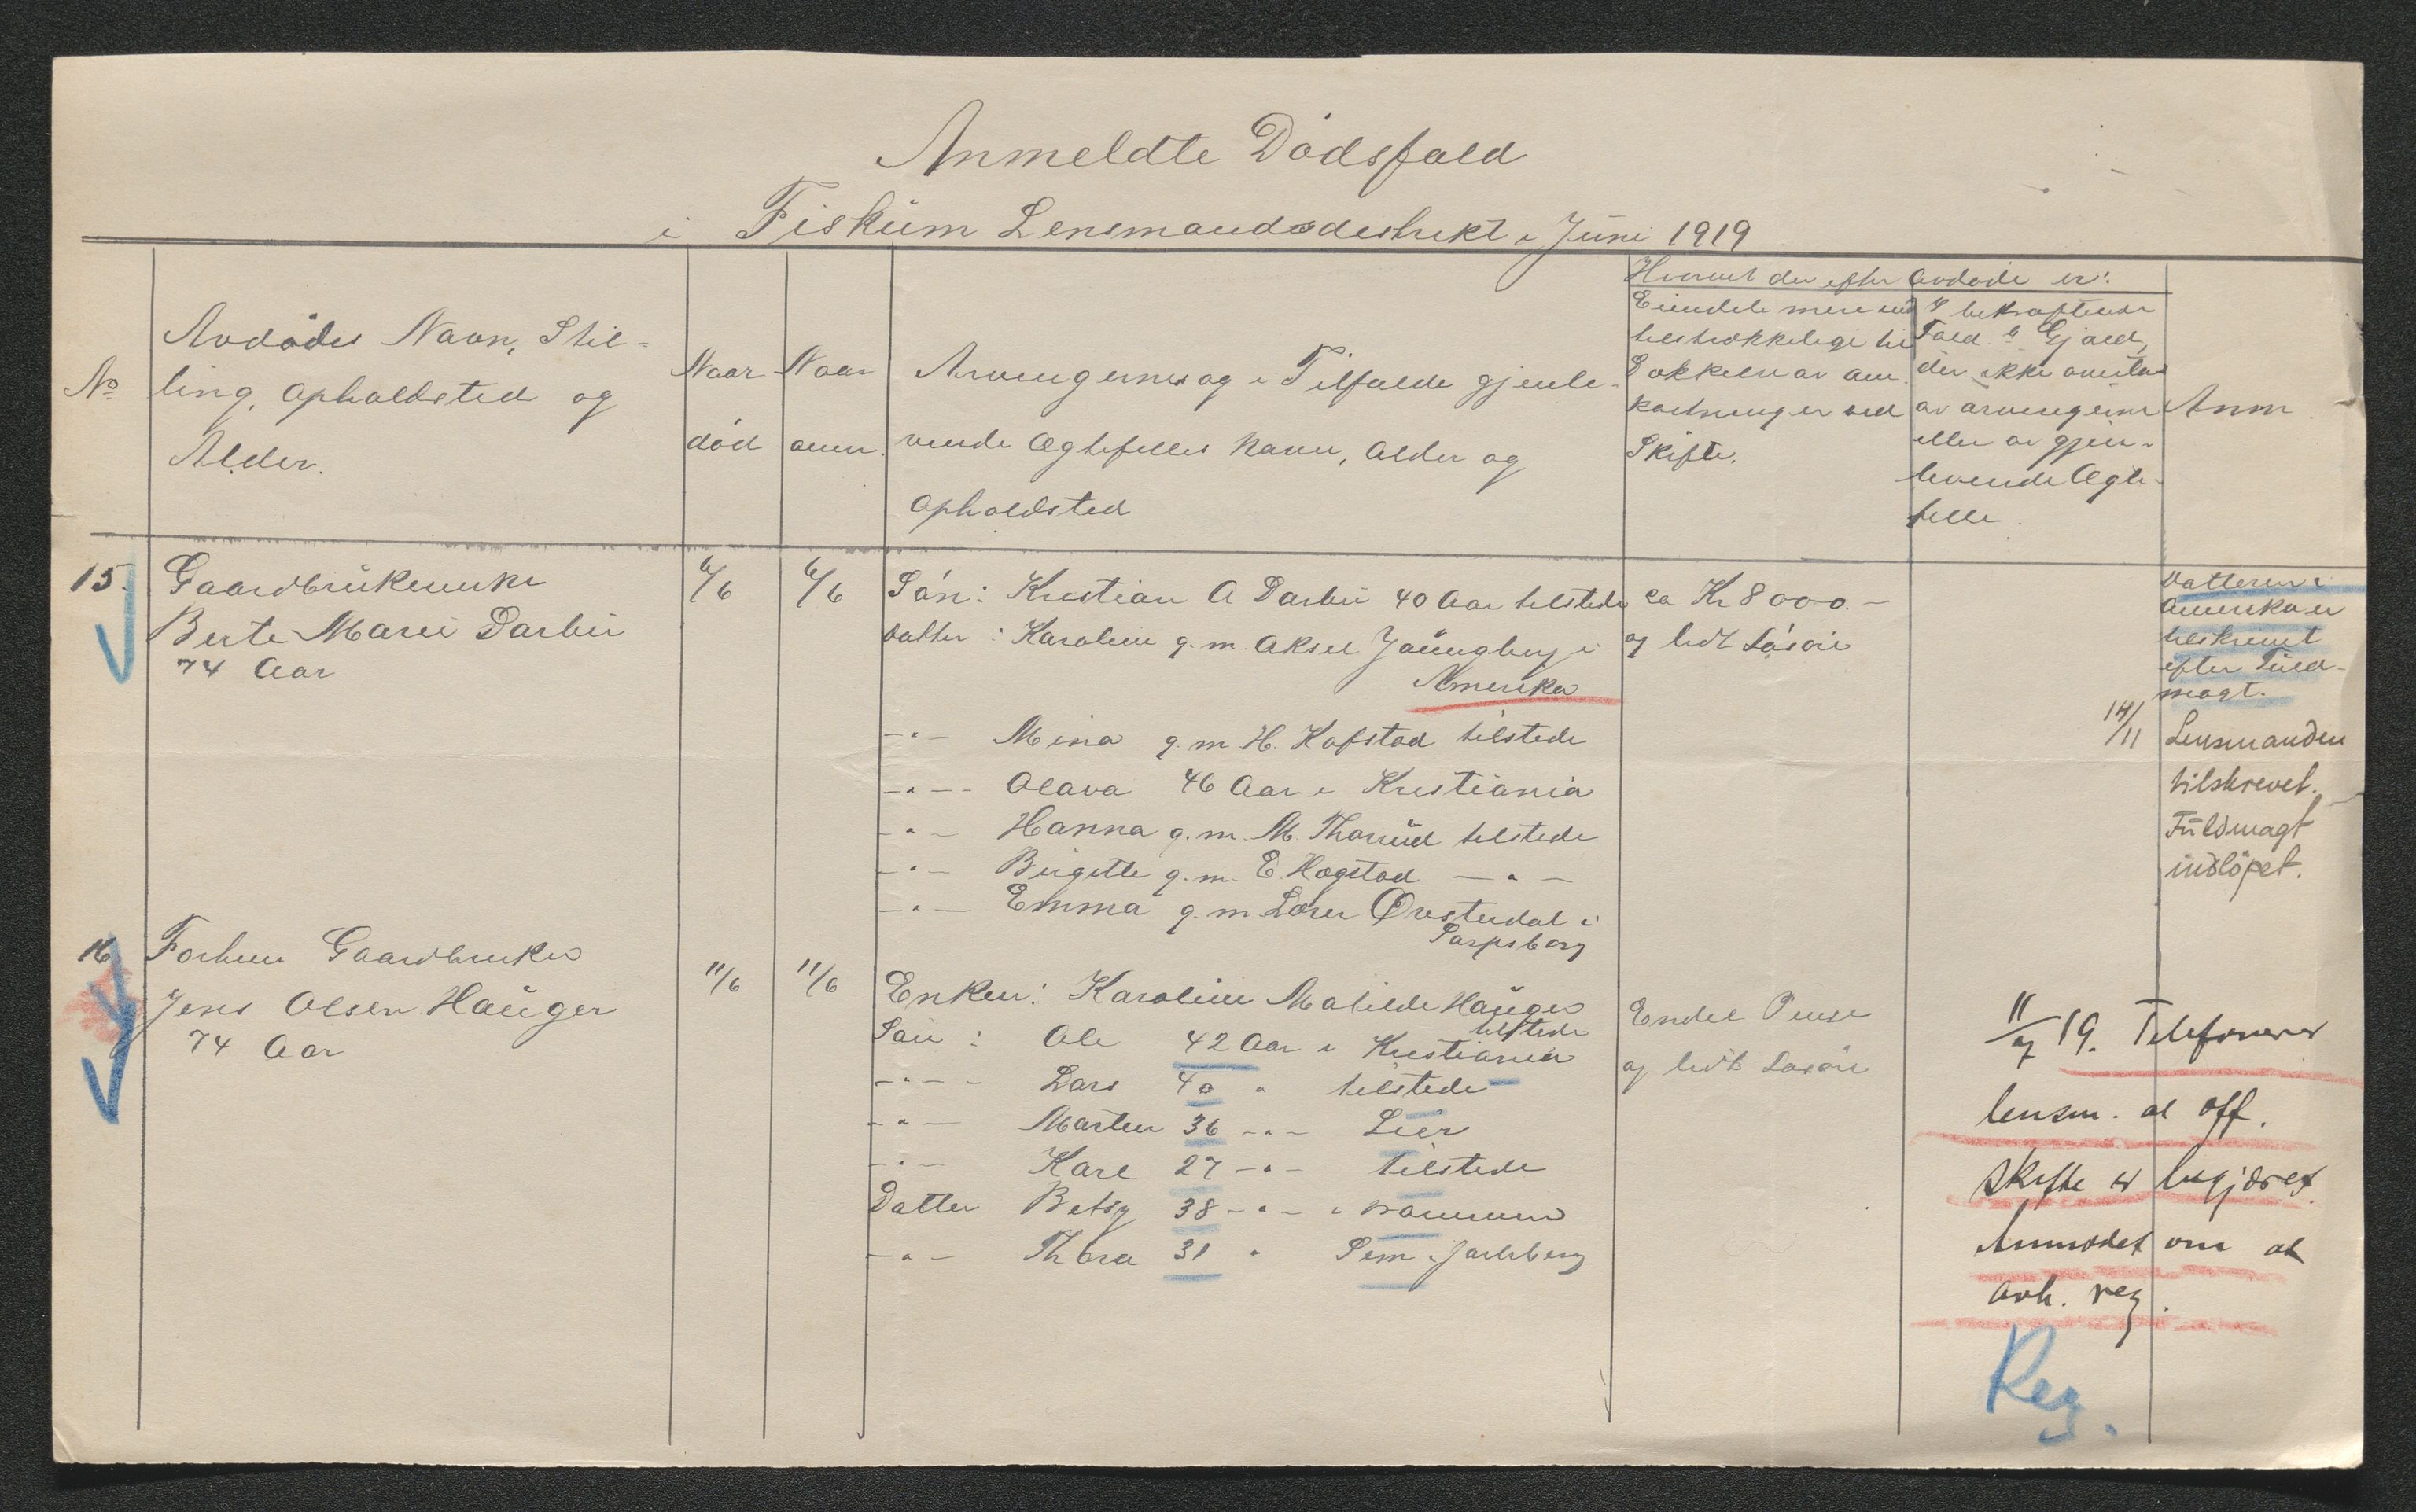 Anmeldte Dødsfald
i Fiskum Lensmandsdestrikt i Juni 1919
No
Avdødes Navn, Stil-
ling, Opholdsted og
Alder.
Naar
død
Naar
anm.
Arvingernes og i Tilfælde gjenle-
vende Ægtefelles Navn, Alder og
Opholdsted
Hvorvet der efter Avdøde er:
Eiendele mere end
tilstrækkelige til
Dækkelse av om-
kostninger ved
Skifte.
I bekræftende
Fald til Gjæld,
der ikke overtas
av arvingerne
eller av gjen-
levende Ægte-
felle.
Anm.
15. Gaardbrukerenke
Berte Marie Darbu
74 Aar
6/6
6/6
Søn: Kristian A Darbu 40 Aar tilstede
Datter: Karoline g. m. Aksel i
Amerika
-"- Mina g. m H. Kofstad tilstede
-"- Olava 46 Aar i Kristiania
-"- Hanna g. m. M. Thorrud tilstede
-"- Birgitte g. m. E. Hogstad -"-
-"- Emma g. m Lorer Øvsterdal i
Sarpsborg
ca Kr 8000.-
og lidt Løsøre
Datteren i
Amerika er
tilskrevet
efter Fuld-
magt.
14/11 Lensmanden
tilskrevet.
Fuldmagt
indløpet.
16 Forhen Gaardbruker
Jens Olsen Hauger
74 Aar
11/6
11/6
Enken: Karoline Matilde Hauger
tilstede
Søn: Ole 42 Aar i Kristiania
-"- Lars 40 " tilstede
-"- Marten 36 -"- Lier
-"- Karl 27 -"- tilstede
Datter Betsy 38 -"- i Drammen
-"- Thora 31 " Sem i Jarlsberg
Endel Penge
og lidt Løsøre
11/7 19. Telefonerer
lensm. at off.
skifte er begjæret
Anmodet om at
avh. reg.
Reg.